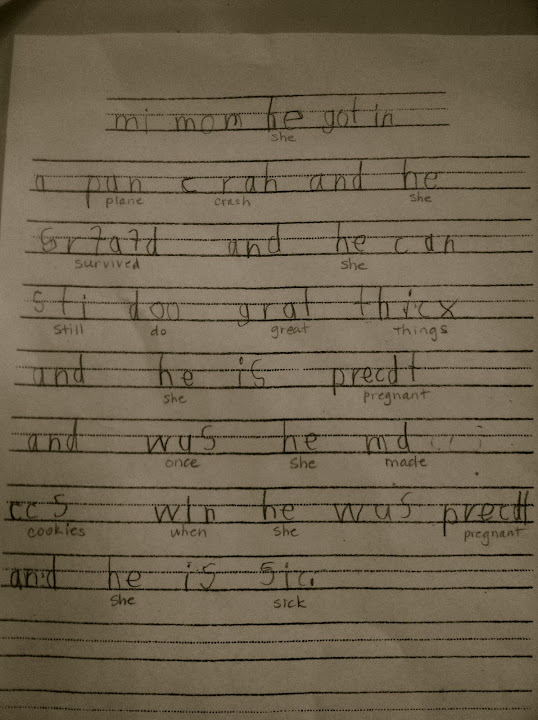 mi mom he got in
she
a pan crah and he
plane crash she
Sr7a7d and he can
survived she
sti doo grat thicx
still do great things
and he is precdt
she pregnant
and wus he md
once she made
ccs win he wus precdt
cookies when she pregnant
and he is sic.
she sick